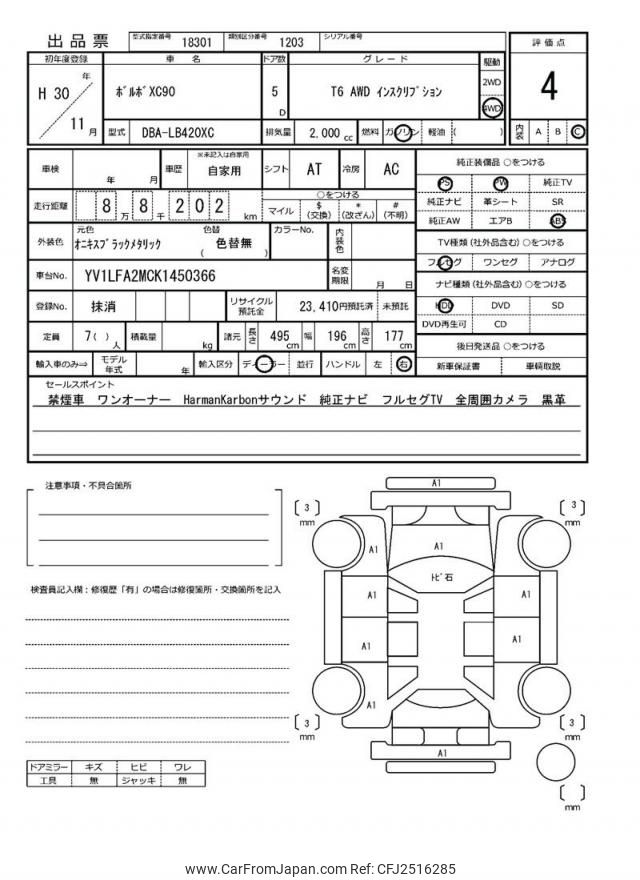 出品票
型式指定番号 18301 類別区分番号 1203 シリアル番号
初年度登録 車名 ドア数 グレード 駆動 評価点
H 30 年 11 月 ボルボXC90 5 D T6 AWD インスクリプション 2WD 4WD 4
型式 DBA-LB420XC 排気量 2,000 cc 燃料 ガソリン 軽油 ( ) 内装 A B C
車検 年 月 車歴 ※未記入は自家用 自家用 シフト AT 冷房 AC
純正装備品 ○をつける
PS PW 純正TV
純正ナビ 革シート SR
純正AW エアB ABS
走行距離 8 万 8 千 2 0 2 km
○をつける
マイル $ (交換) * (改ざん) # (不明)
外装色 元色 オニキスブラックメタリック 色替 ( 色替無 ) カラーNo. 内装色
TV種類 (社外品含む) ○をつける
フルセグ ワンセグ アナログ
車台No. YV1LFA2MCK1450366 名変期限 月 日
ナビ種類 (社外品含む) ○をつける
HDD DVD SD
DVD再生可 CD
登録No. 抹消 リサイクル預託金 23,410円預託済 未預託
定員 7( ) 人 積載量 kg 諸元 長さ 495 cm 幅 196 cm 高さ 177 cm
後日発送品 ○をつける
新車保証書 車輌取説
輸入車のみ⇒ モデル年式 年 輸入区分 ディーラー 並行 ハンドル 左 右
セールスポイント
禁煙車 ワンオーナー HarmanKarbonサウンド 純正ナビ フルセグTV 全周囲カメラ 黒革
注意事項・不具合箇所
検査員記入欄：修復歴「有」の場合は修復箇所・交換箇所を記入
A1
[ 3 ] mm
[ 3 ] mm
A1
A1
トビ石
A1
A1
A1
A1
A1
[ 3 ] mm
[ 3 ] mm
A1
[ ] mm
ドアミラー キズ ヒビ ワレ
工具 無 ジャッキ 無
www.CarFromJapan.com Ref: CFJ2516285